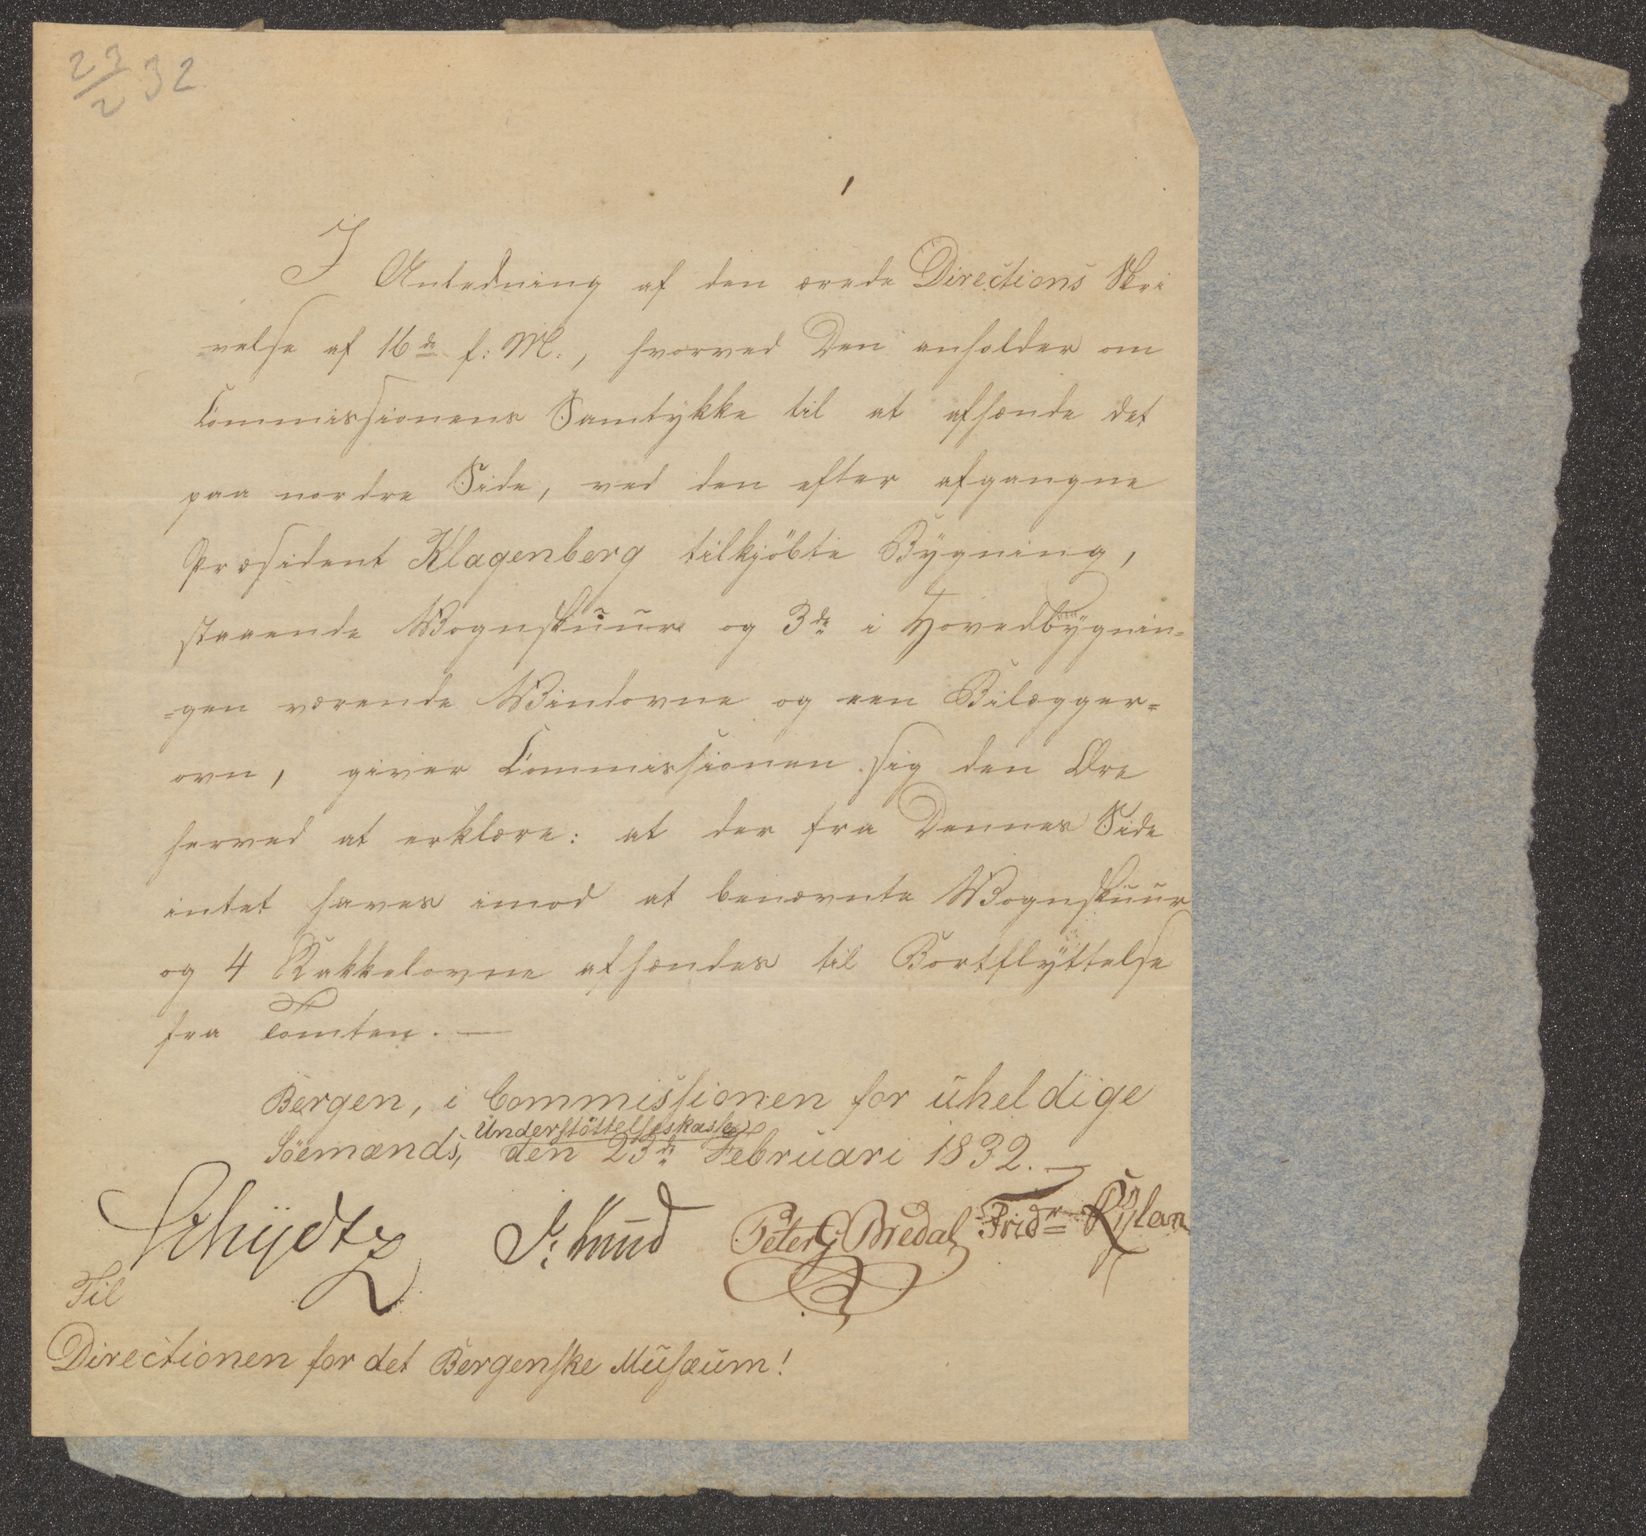 23/2 32
I Anledning af den ærede Directions Skri
velse af 16de f: M:, hvorved Den anholder om
Commissionens Samtykke til at afhænde det
paa nordre Side, ved den efter afgangne
Præsident Klagenberg tilkjöbte Bygning,
staaende Vognskuur og 3de i Hovedbygnin=
=gen værende Vindovne og een Bilægger=
ovn, giver Commissionen sig den Ære
herved at erklære: at der fra Dennes Side
intet haves imod at benævnte Vognskuur
og 4 Kakkelovne afhændes til Bortflyttelse
fra Tomten. —
Bergen, i Commissionen for uheldige
Söemænds, Understöttelseskasse
den 23de Februari 1832. —
Schydtz Knud Peter G. Bredal Fridr Rylan
Til
Directionen for det Bergenske Musæum!